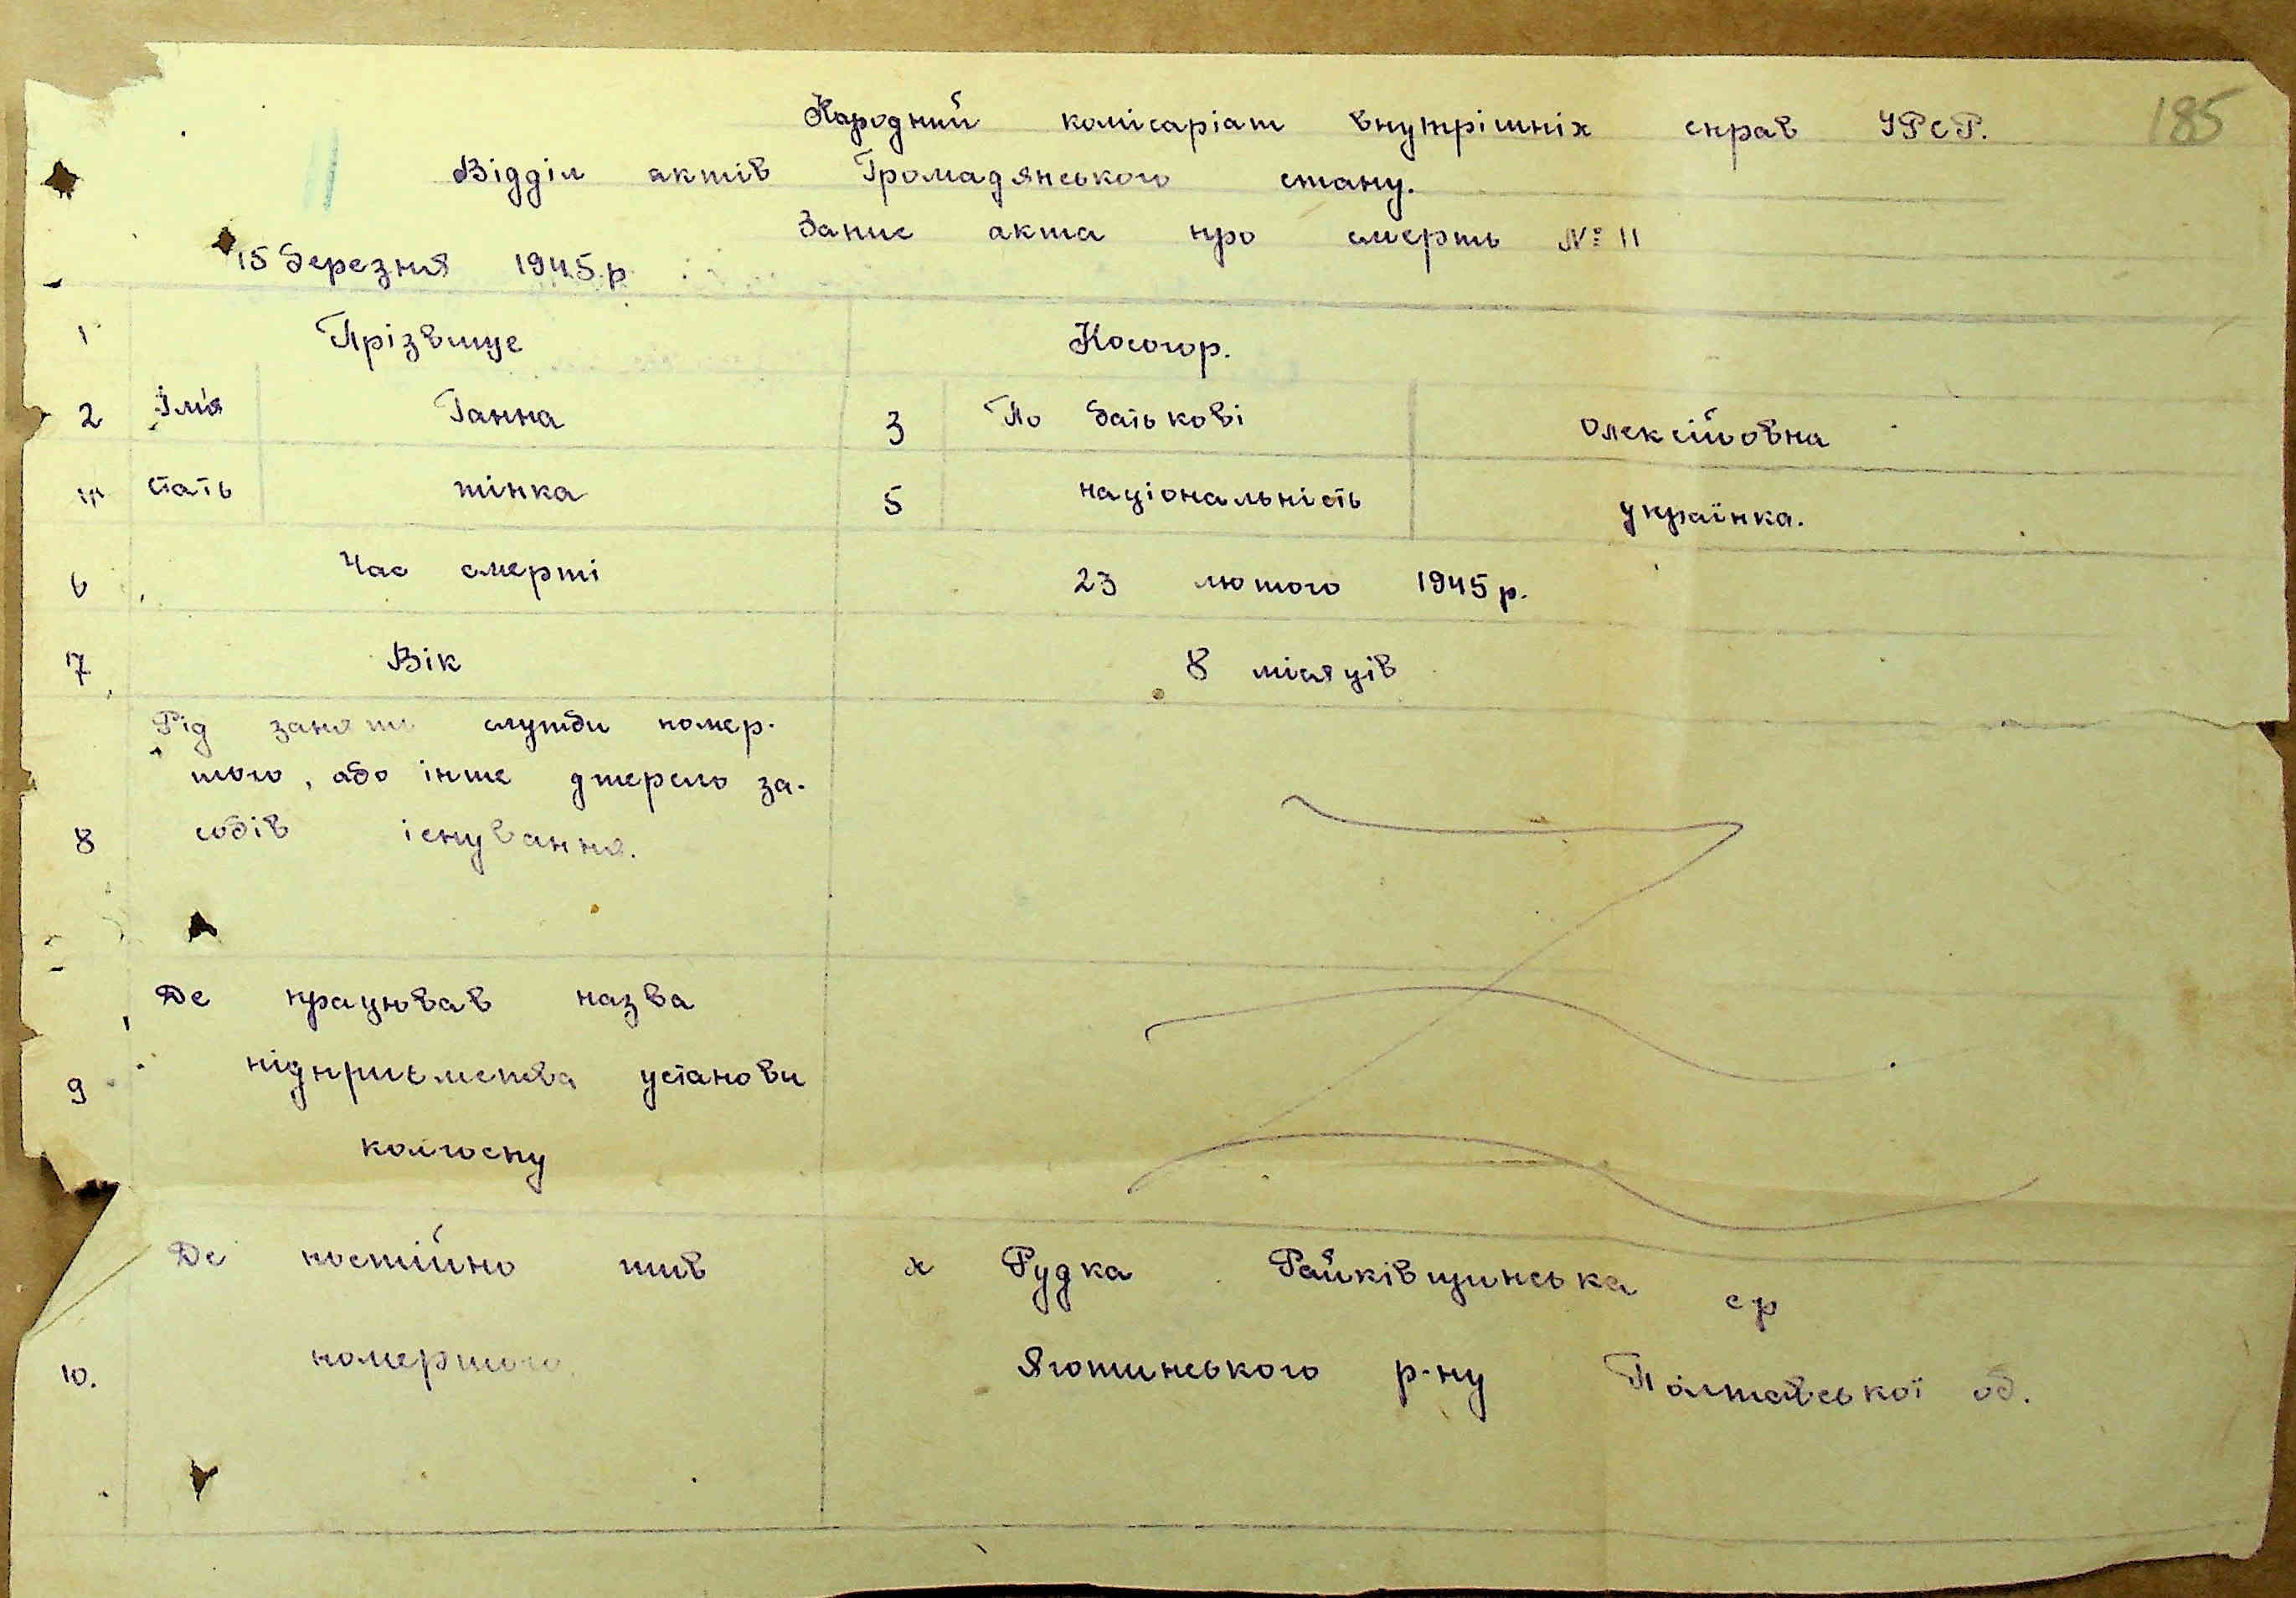 185
Народний комісаріат внутрішніх справ УРСР.
Відділ актів Громадянського стану.
Запис акта про смерть № 11
15 березня 1945 р
1 Прізвище Косогор.
2 Ім'я Ганна 3 По батькові Олексійовна
4 Стать жінка 5 національність українка.
6 Час смерті 23 лютого 1945 р.
7 Вік 8 місяців
Рід занять служби помер-
того, або інше джерело за-
8 собів існування.
Де працював назва
підприємства установи
9
колгоспу
Де постійно жив х Рудка Райківщинська ср
10. помершого Яготинського р-ну Полтавської об.